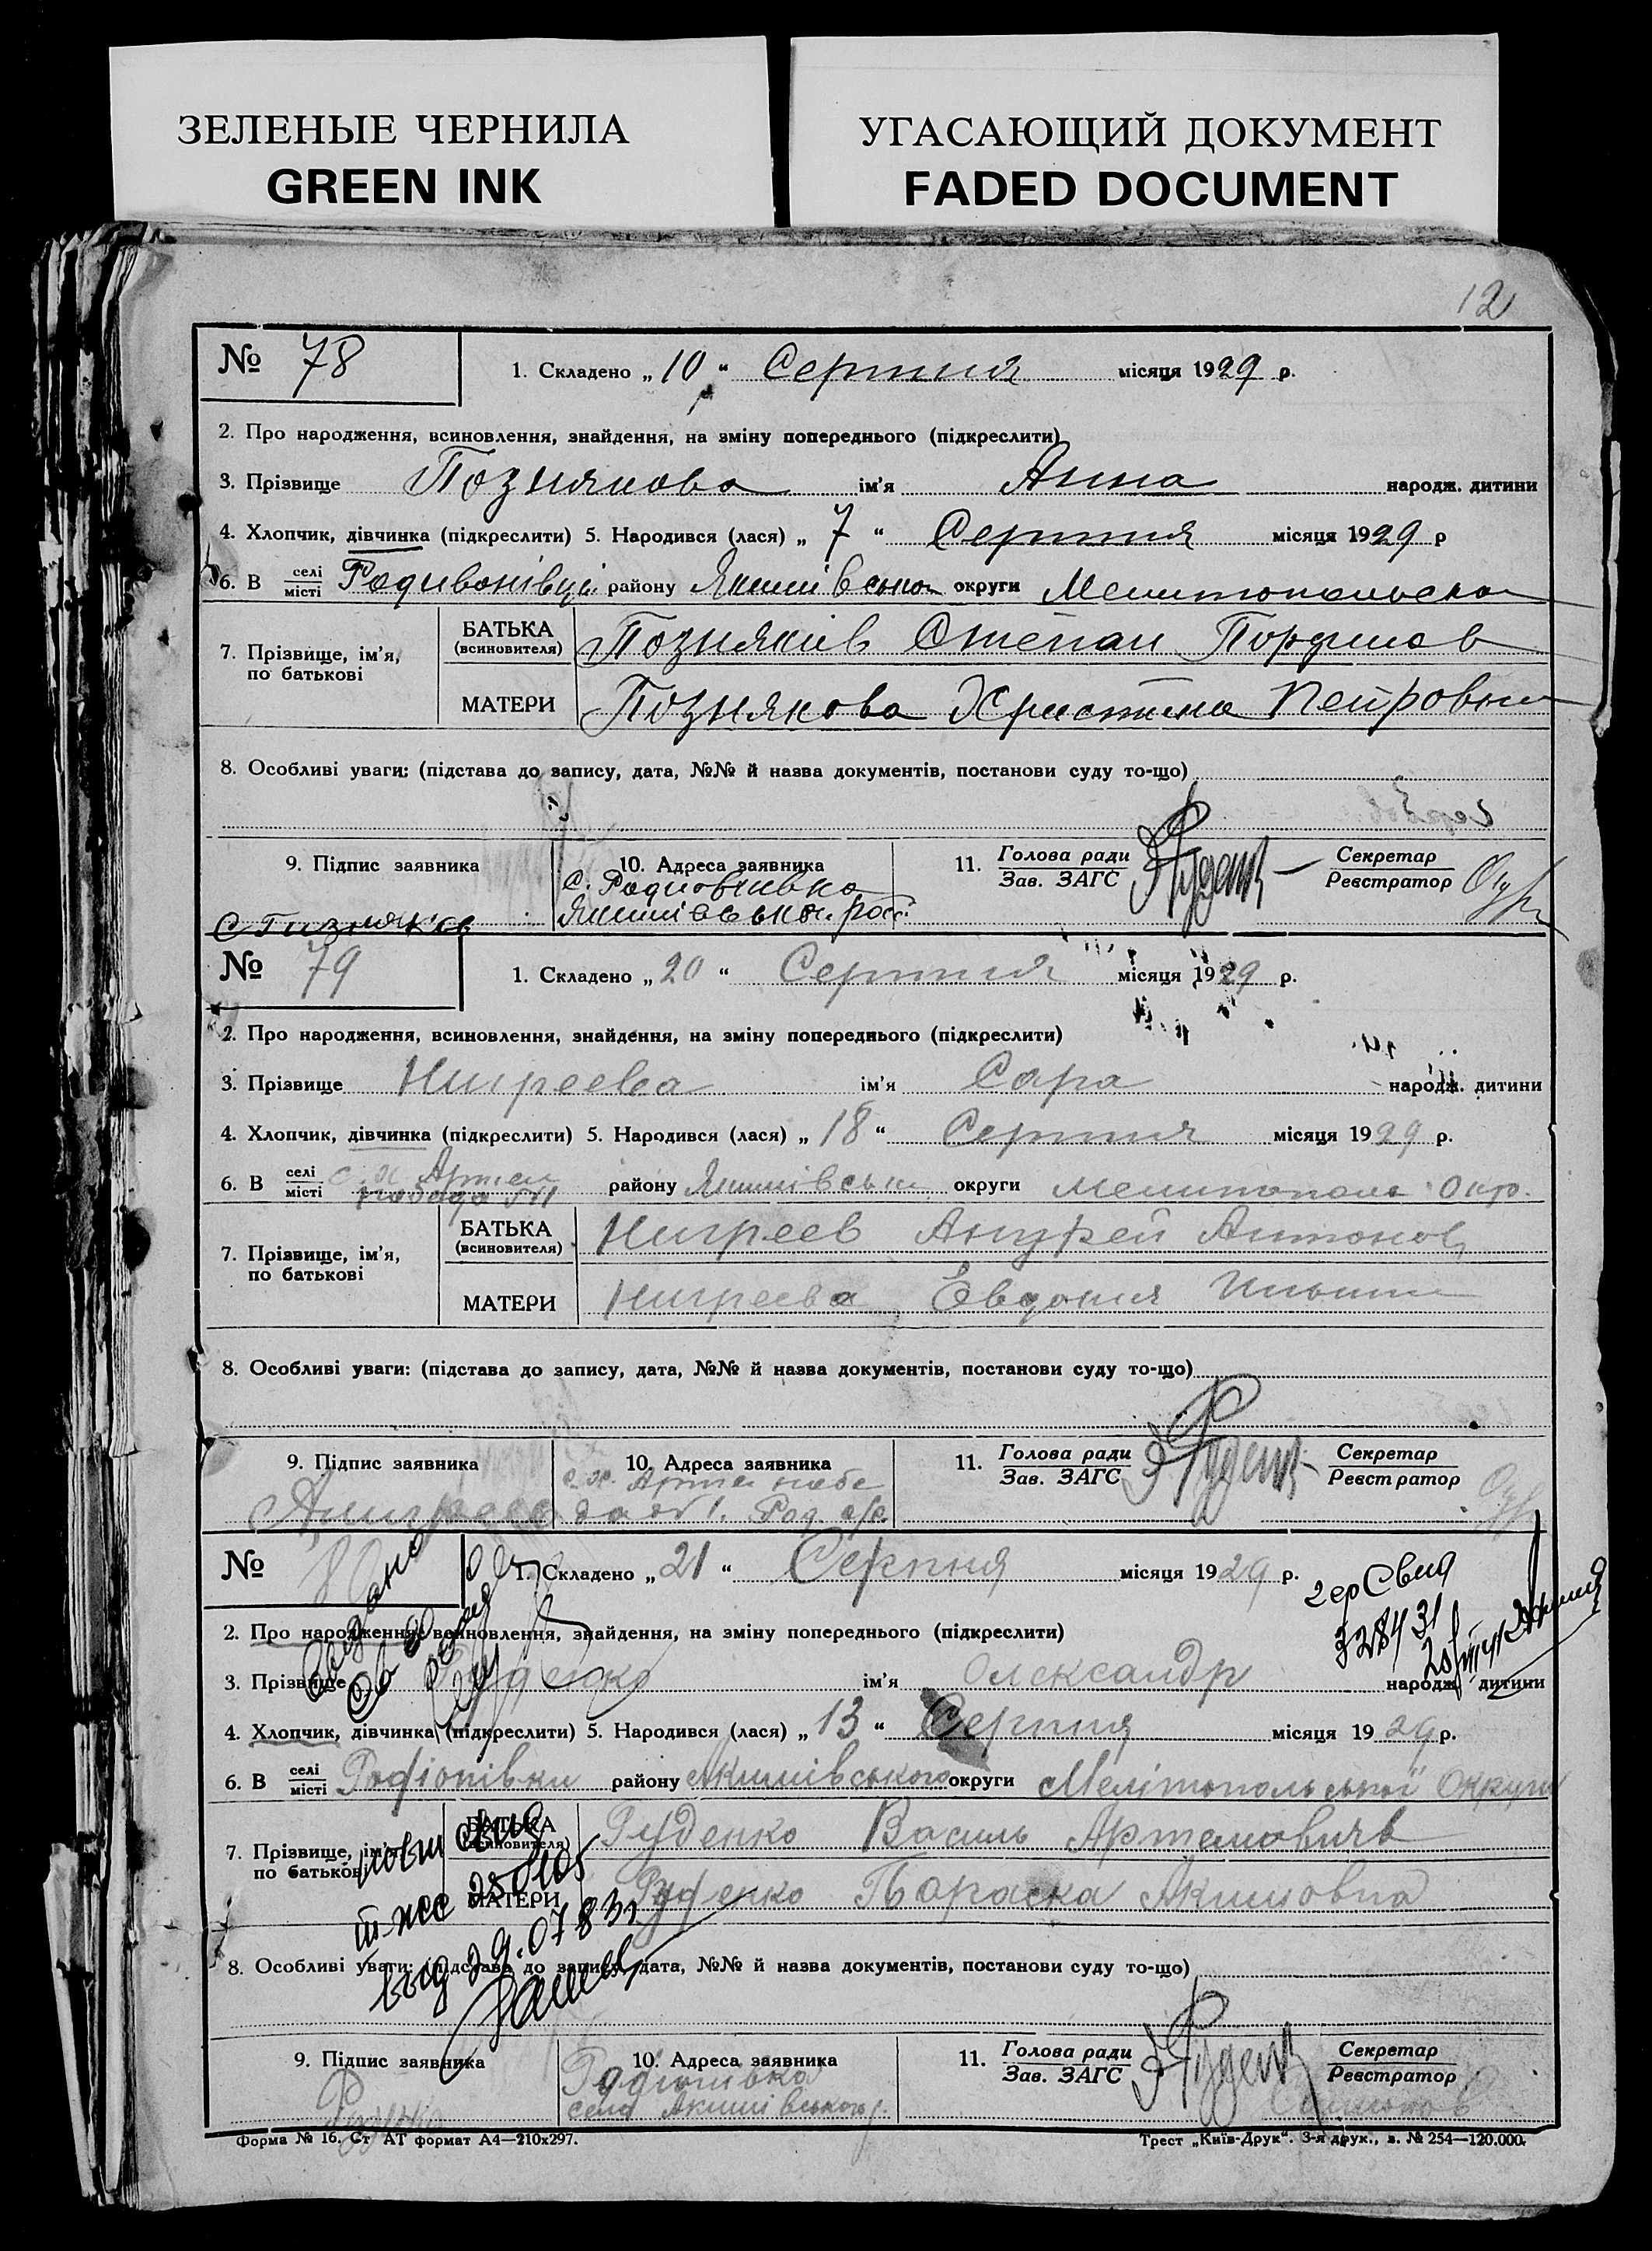 ЗЕЛЕНЫЕ ЧЕРНИЛА
GREEN INK
УГАСАЮЩИЙ ДОКУМЕНТ
FADED DOCUMENT
12
№ 78
1. Складено „ 10 “ Серпния місяця 1929 р.
2. Про народження, всиновлення, знайдення, на зміну попереднього (підкреслити)
3. Прізвище Познякова ім'я Анна народж. дитини
4. Хлопчик, дівчинка (підкреслити) 5. Народився (лася) „ 7 “ Серпния місяця 1929 р
6. В селі місті Родивонівці району Якимівсько округи Мелитопольска
7. Прізвище, ім'я, по батькові
БАТЬКА (всиновителя) Позняків Степан
МАТЕРИ Познякова Христина Петровна
8. Особливі уваги: (підстава до запису, дата, №№ й назва документів, постанови суду то-що)
9. Підпис заявника
10. Адреса заявника
с. Родионвка
11. Голова ради Зав. ЗАГС
Секретар Реєстратор
№ 79
1. Складено „ 20 “ Серпния місяця 1929 р.
2. Про народження, всиновлення, знайдення, на зміну попереднього (підкреслити)
3. Прізвище Нигреева ім'я Сара народж. дитини
4. Хлопчик, дівчинка (підкреслити) 5. Народився (лася) „ 18 “ Серпния місяця 1929 р.
6. В селі місті с. х Артель району Якимівськи округи Мелитополь Окр.
7. Прізвище, ім'я, по батькові
БАТЬКА (всиновителя) Нигреев Андрей Антонов
МАТЕРИ Нигреева Евдокия
8. Особливі уваги: (підстава до запису, дата, №№ й назва документів, постанови суду то-що)
9. Підпис заявника
10. Адреса заявника
11. Голова ради Зав. ЗАГС
Секретар Реєстратор
№ 80
1. Складено „ 21 “ Серпня місяця 1929 р.
2. Про народження, всиновлення, знайдення, на зміну попереднього (підкреслити)
3. Прізвище Руденко ім'я Олександр народж. дитини
4. Хлопчик, дівчинка (підкреслити) 5. Народився (лася) „ 13 “ Серпня місяця 1929 р.
6. В селі місті Родіонівки району Якимівського округи Мелітопольської Округи
7. Прізвище, ім'я, по батькові
БАТЬКА (всиновителя) Руденко Василь Артемовичь
МАТЕРИ Руденко Параска Акимовна
8. Особливі уваги: (підстава до запису, дата, №№ й назва документів, постанови суду то-що)
9. Підпис заявника
10. Адреса заявника
Родіонівка
села Якимівського р.
11. Голова ради Зав. ЗАГС
Секретар Реєстратор
Форма № 16. Ст АТ формат А4—210х297.
Трест „Київ-Друк“. 3-я друк., з. № 254—120.000.